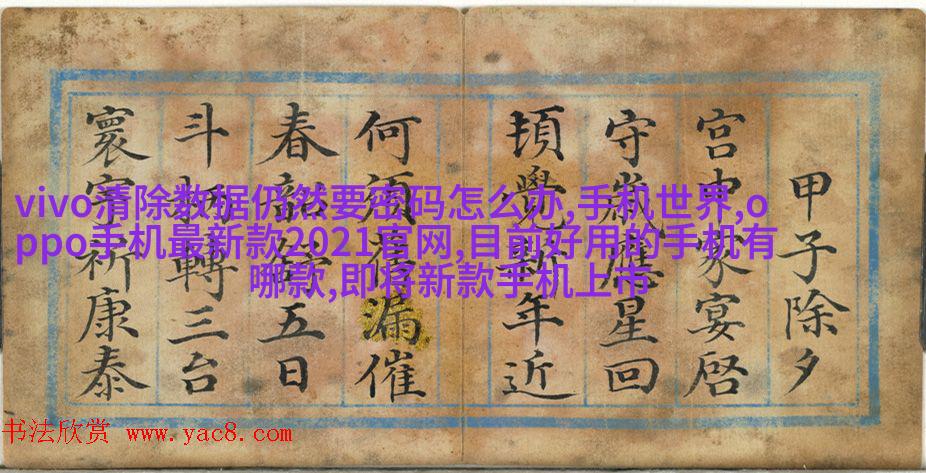 甲子除夕
宮中家宴啓
守歲應星回
頓覺新年近
何須漏催
春韶五日
斗柄轉三台
寰宇祈康泰
vivo清除数据仍然要密码怎么办,手机世界,o
ppo手机最新款2021官网,目前好用的手机有
哪款,即将新款手机上市
书法欣赏 www.yac8.com